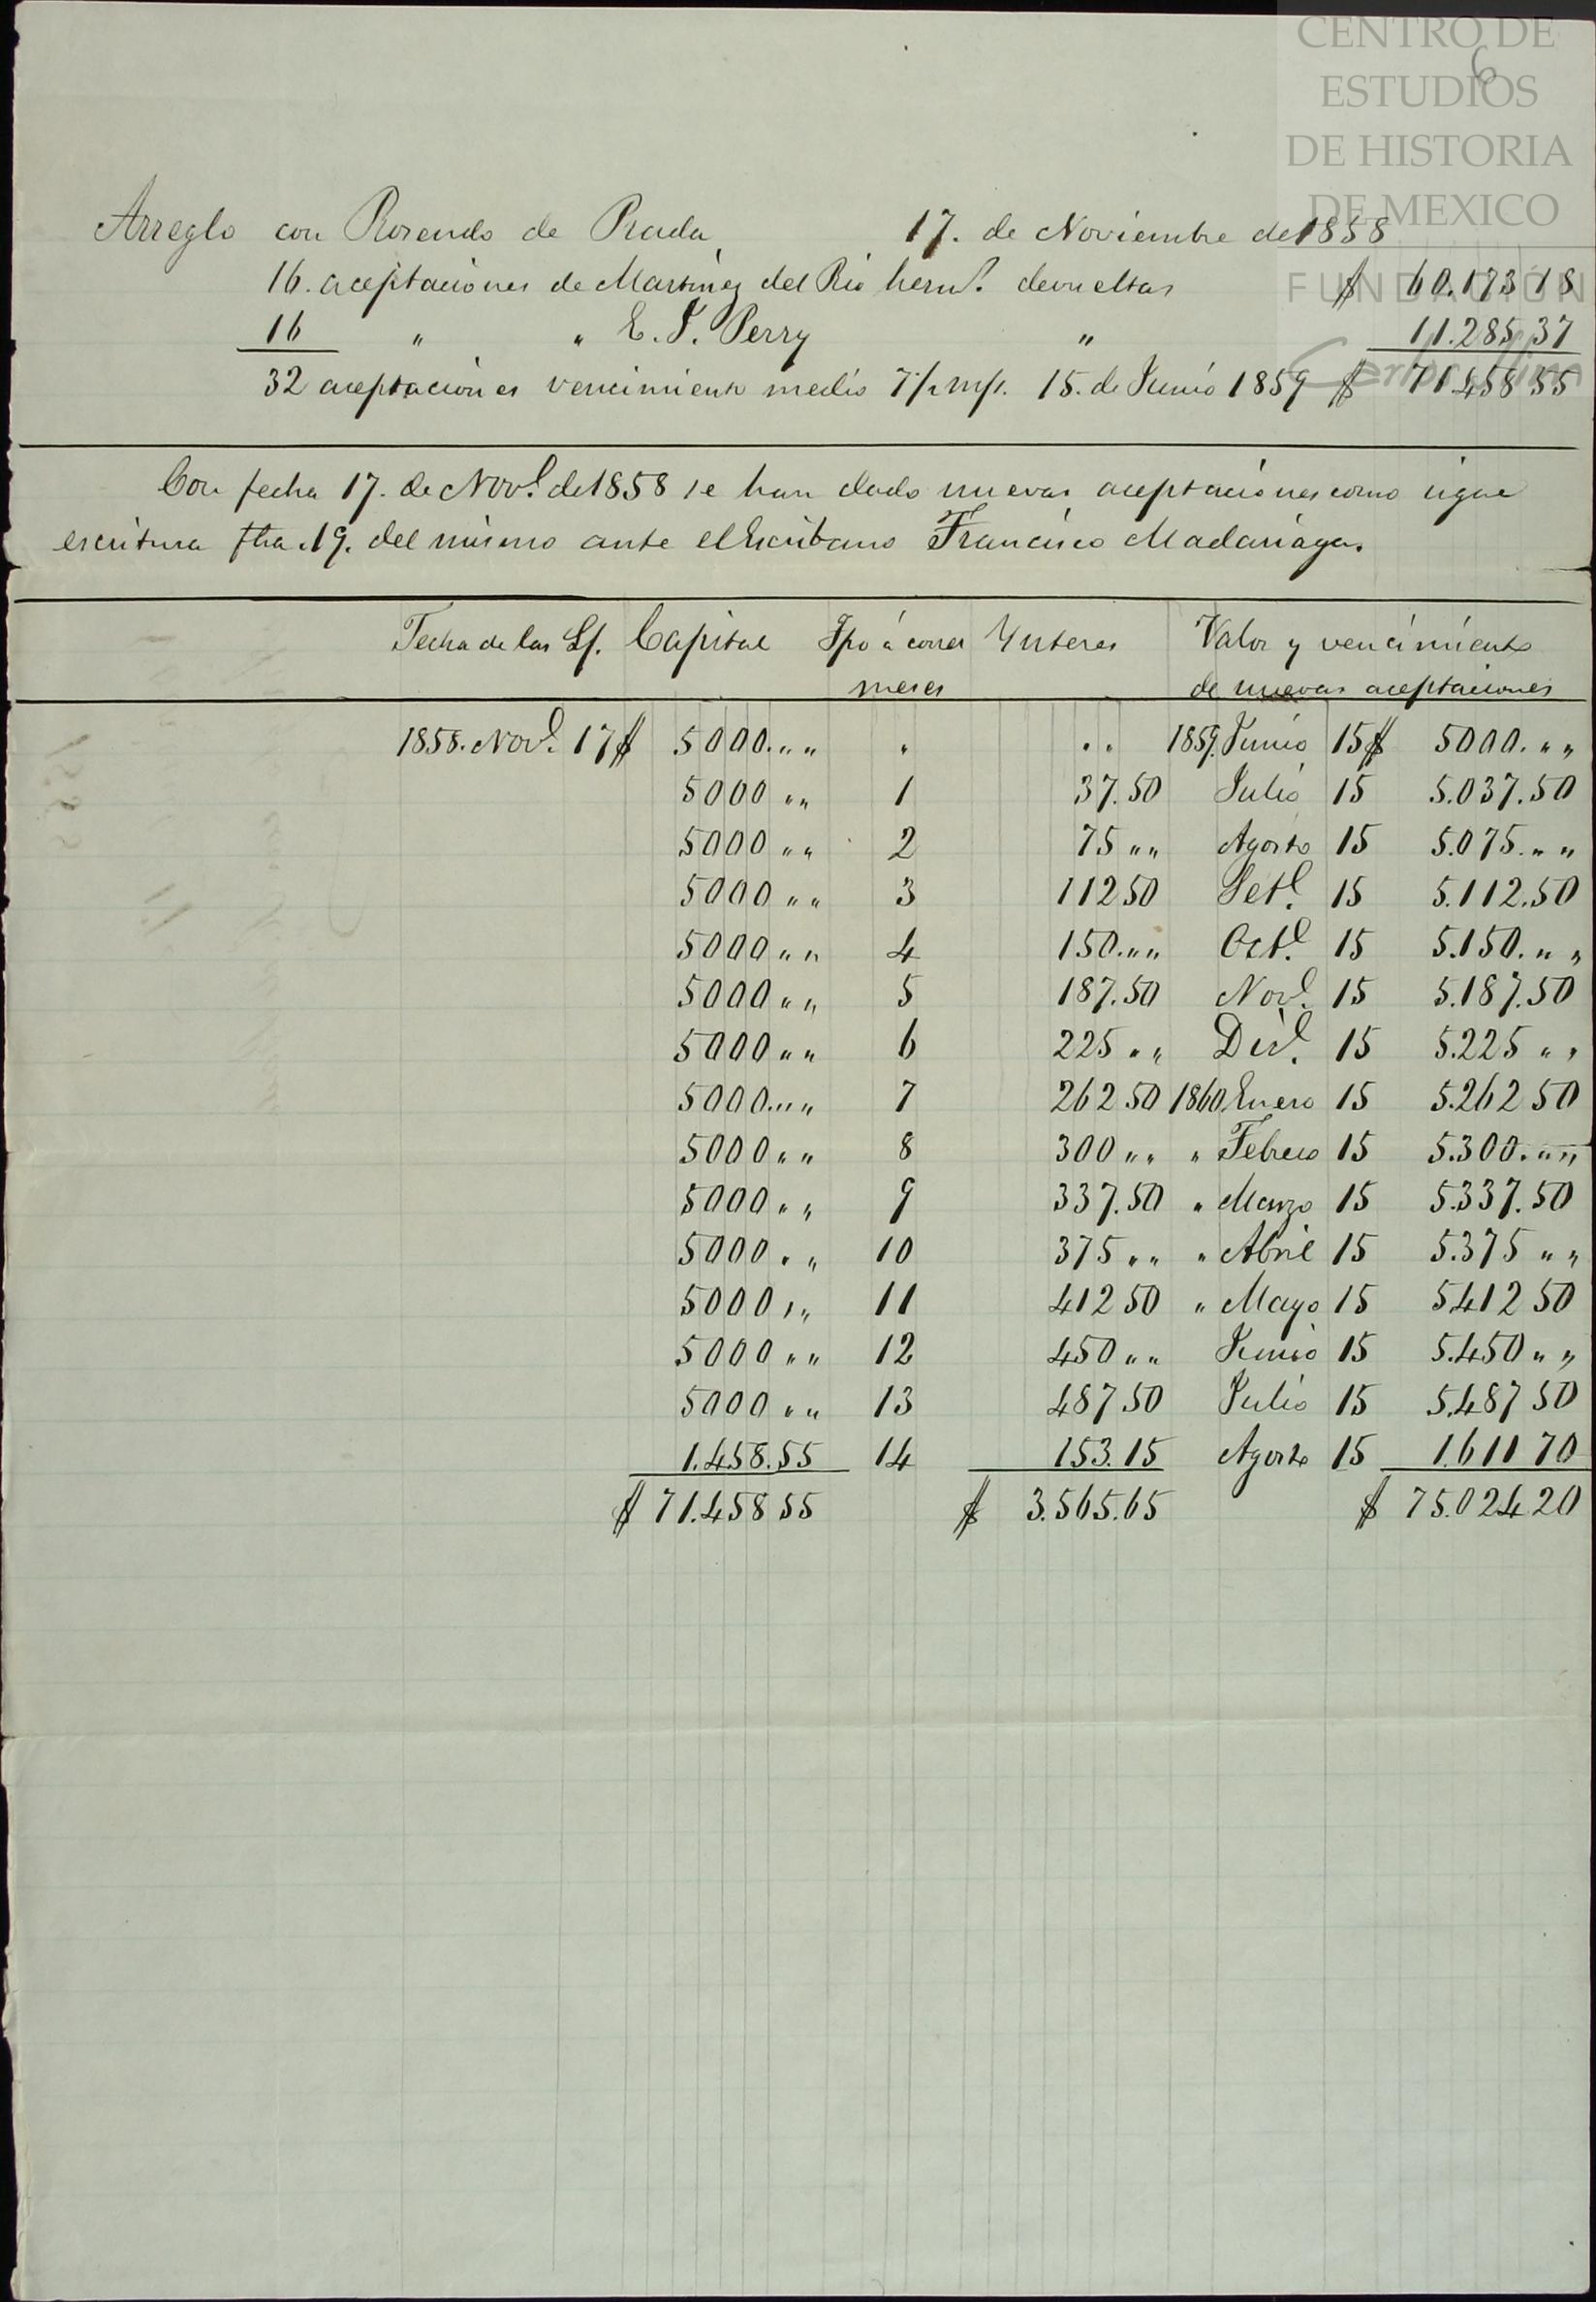 CENTRO DE
ESTUDIOS
DE HISTORIA
DE MEXICO
FUNDACIÓN
6
Arreglo con Rosendo de Prada, 17. de Noviembre de 1858
16. aceptaciones de Martinez del Rio herm.s devueltas $ 60.173 18
16 " " E. J. Perry " 11.285 37
32 aceptaciones vencimiento medio 15. de Junio 1859 $ 71.458 55
Con fecha 17. de Nov.e de 1858 se han dado nuevas aceptaciones como sigue
escritura fha. 19. del mismo ante el Escribano Francisco Madariaga.
Fecha de las Lf. Capital Tpo á correr Ynteres Valor y vencimiento
meses de nuevas aceptaciones
1858. Nov.e 17 $ 5000. " " " " " 1859. Junio 15 $ 5000. " "
5000 " " 1 37.50 Julio 15 5.037.50
5000 " " 2 75 " " Agosto 15 5.075. " "
5000 " " 3 112 50 Set.e 15 5.112.50
5000 " " 4 150. " " Oct.e 15 5.150. " "
5000 " " 5 187.50 Nov.e 15 5.187.50
5000 " " 6 225 " " Dic.e 15 5.225 " "
5000. " " 7 262 50 1860 Enero 15 5.262 50
5000 " " 8 300 " " " Febrero 15 5.300. " "
5000 " " 9 337.50 " Marzo 15 5.337.50
5000 " " 10 375 " " " Abril 15 5.375 " "
5000 " " 11 412 50 " Mayo 15 5412 50
5000 " " 12 450 " " Junio 15 5.450 " "
5000 " " 13 487.50 Julio 15 5.487 50
1.458.55 14 153.15 Agosto 15 1.611 70
$ 71.458 55 $ 3.565.65 $ 75.024 20